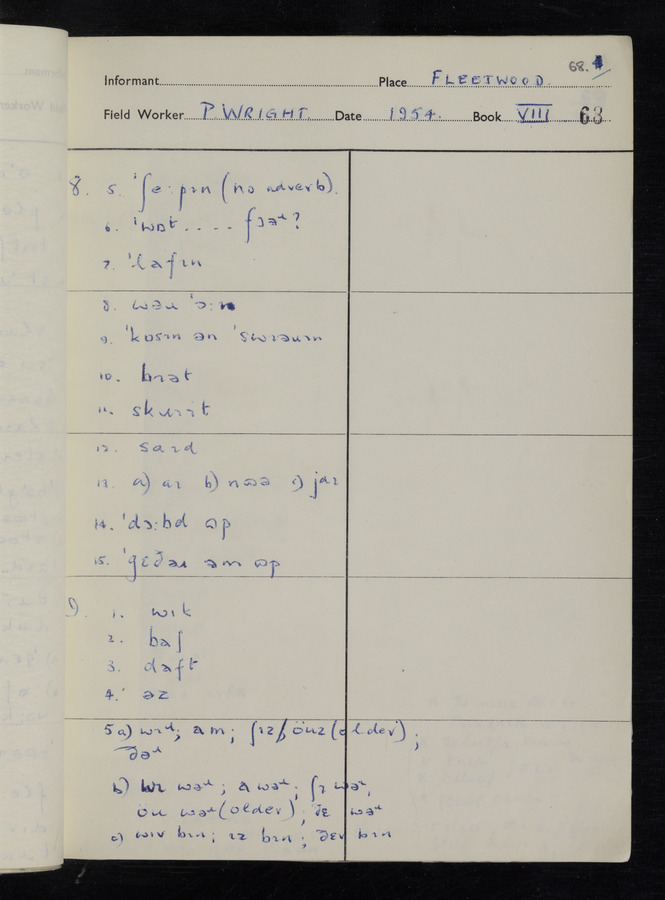 68. 1/
Informant Place FLEETWOOD.
Field Worker P. WRIGHT. Date 1954. Book VIII 63
8. 5. ˈʃeːpɪn (no adverb).
6. ˈwɒt .... fɔəʴ?
7. ˈlafɪn
8. wəu ˈɔːn
9. ˈkɒsɪn ən ˈswɪəuɪn
10. bɪət
11. skuɪɪt
12. saɪd
13. a) aɪ b) nɔə c) jaɪ
14. ˈdɔːbd ɷp
15. ˈgɛðəɹ əm ɷp
9. 1. wɪk
2. baʃ
3. daft
4. əz
5 a) wɪʴ; am; ʃɪz/öuz (older);
ðəʴ
b) wɪ wəʴ; a wəʴ; ʃɪ wəʴ,
öu wəʴ (older); ðɛ wəʴ
c) wɪv bɪn; ɪz bɪn; ðɛv bɪn